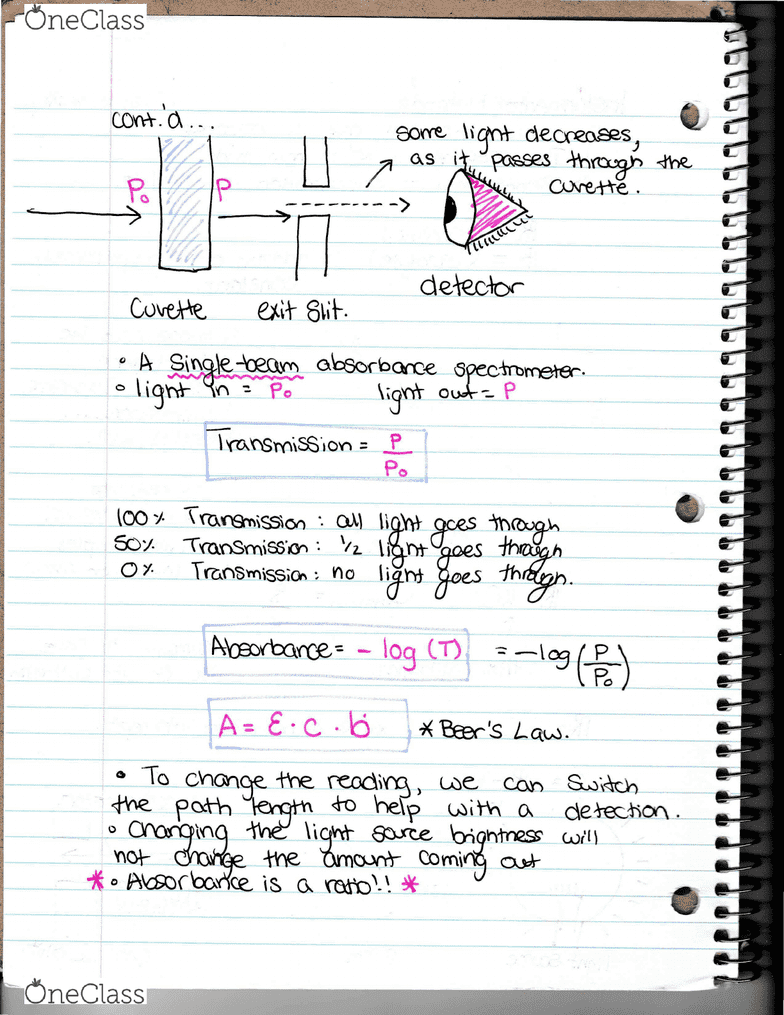 OneClass
cont.'d...
some light decreases,
as it passes through the
cuvette.
P₀
P
detector
Cuvette
exit Slit.
• A Single-beam absorbance spectrometer.
• light in = P₀ light out = P
Transmission = P/P₀
100% Transmission : all light goes through
50% Transmission : 1/2 light goes through
0% Transmission : no light goes through.
Absorbance = - log (T) = -log (P/P₀)
A = ε · c · b *Beer's Law.
• To change the reading, we can switch
the path length to help with a detection.
• Changing the light source brightness will
not change the amount coming out
* • Absorbance is a ratio!! *
OneClass